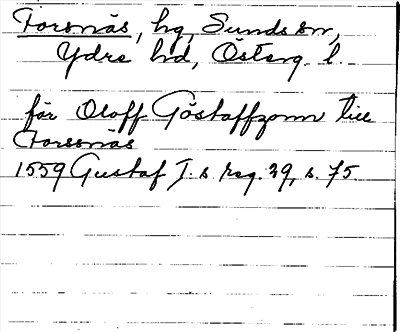 Forsnäs, hg, Sunds sn,
Ydre hd, Österg. l.
för Oloff Göstaffzonn till
Forssnäs
1559 Gustaf I.s reg. 29, s. 75.